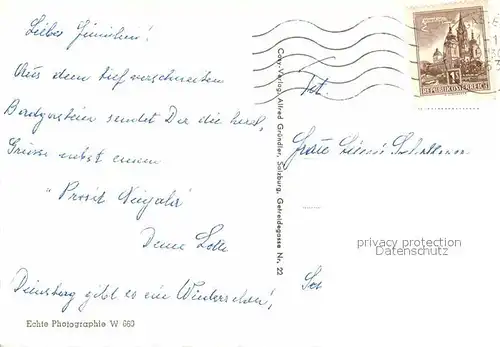 Liebes
Aus dem tief verschneiten
Badgastein sendet Dir die herzl.
Grüsse nebst einem
"Prosit Neujahr"
Deine Lotte
Dienstag gibt es ein Wiedersehen!
Echte Photographie W 663
Cosy-Verlag, Alfred Gründler, Salzburg, Getreidegasse Nr. 22
REPUBLIK ÖSTERREICH
1S
privacy protection
Datenschutz